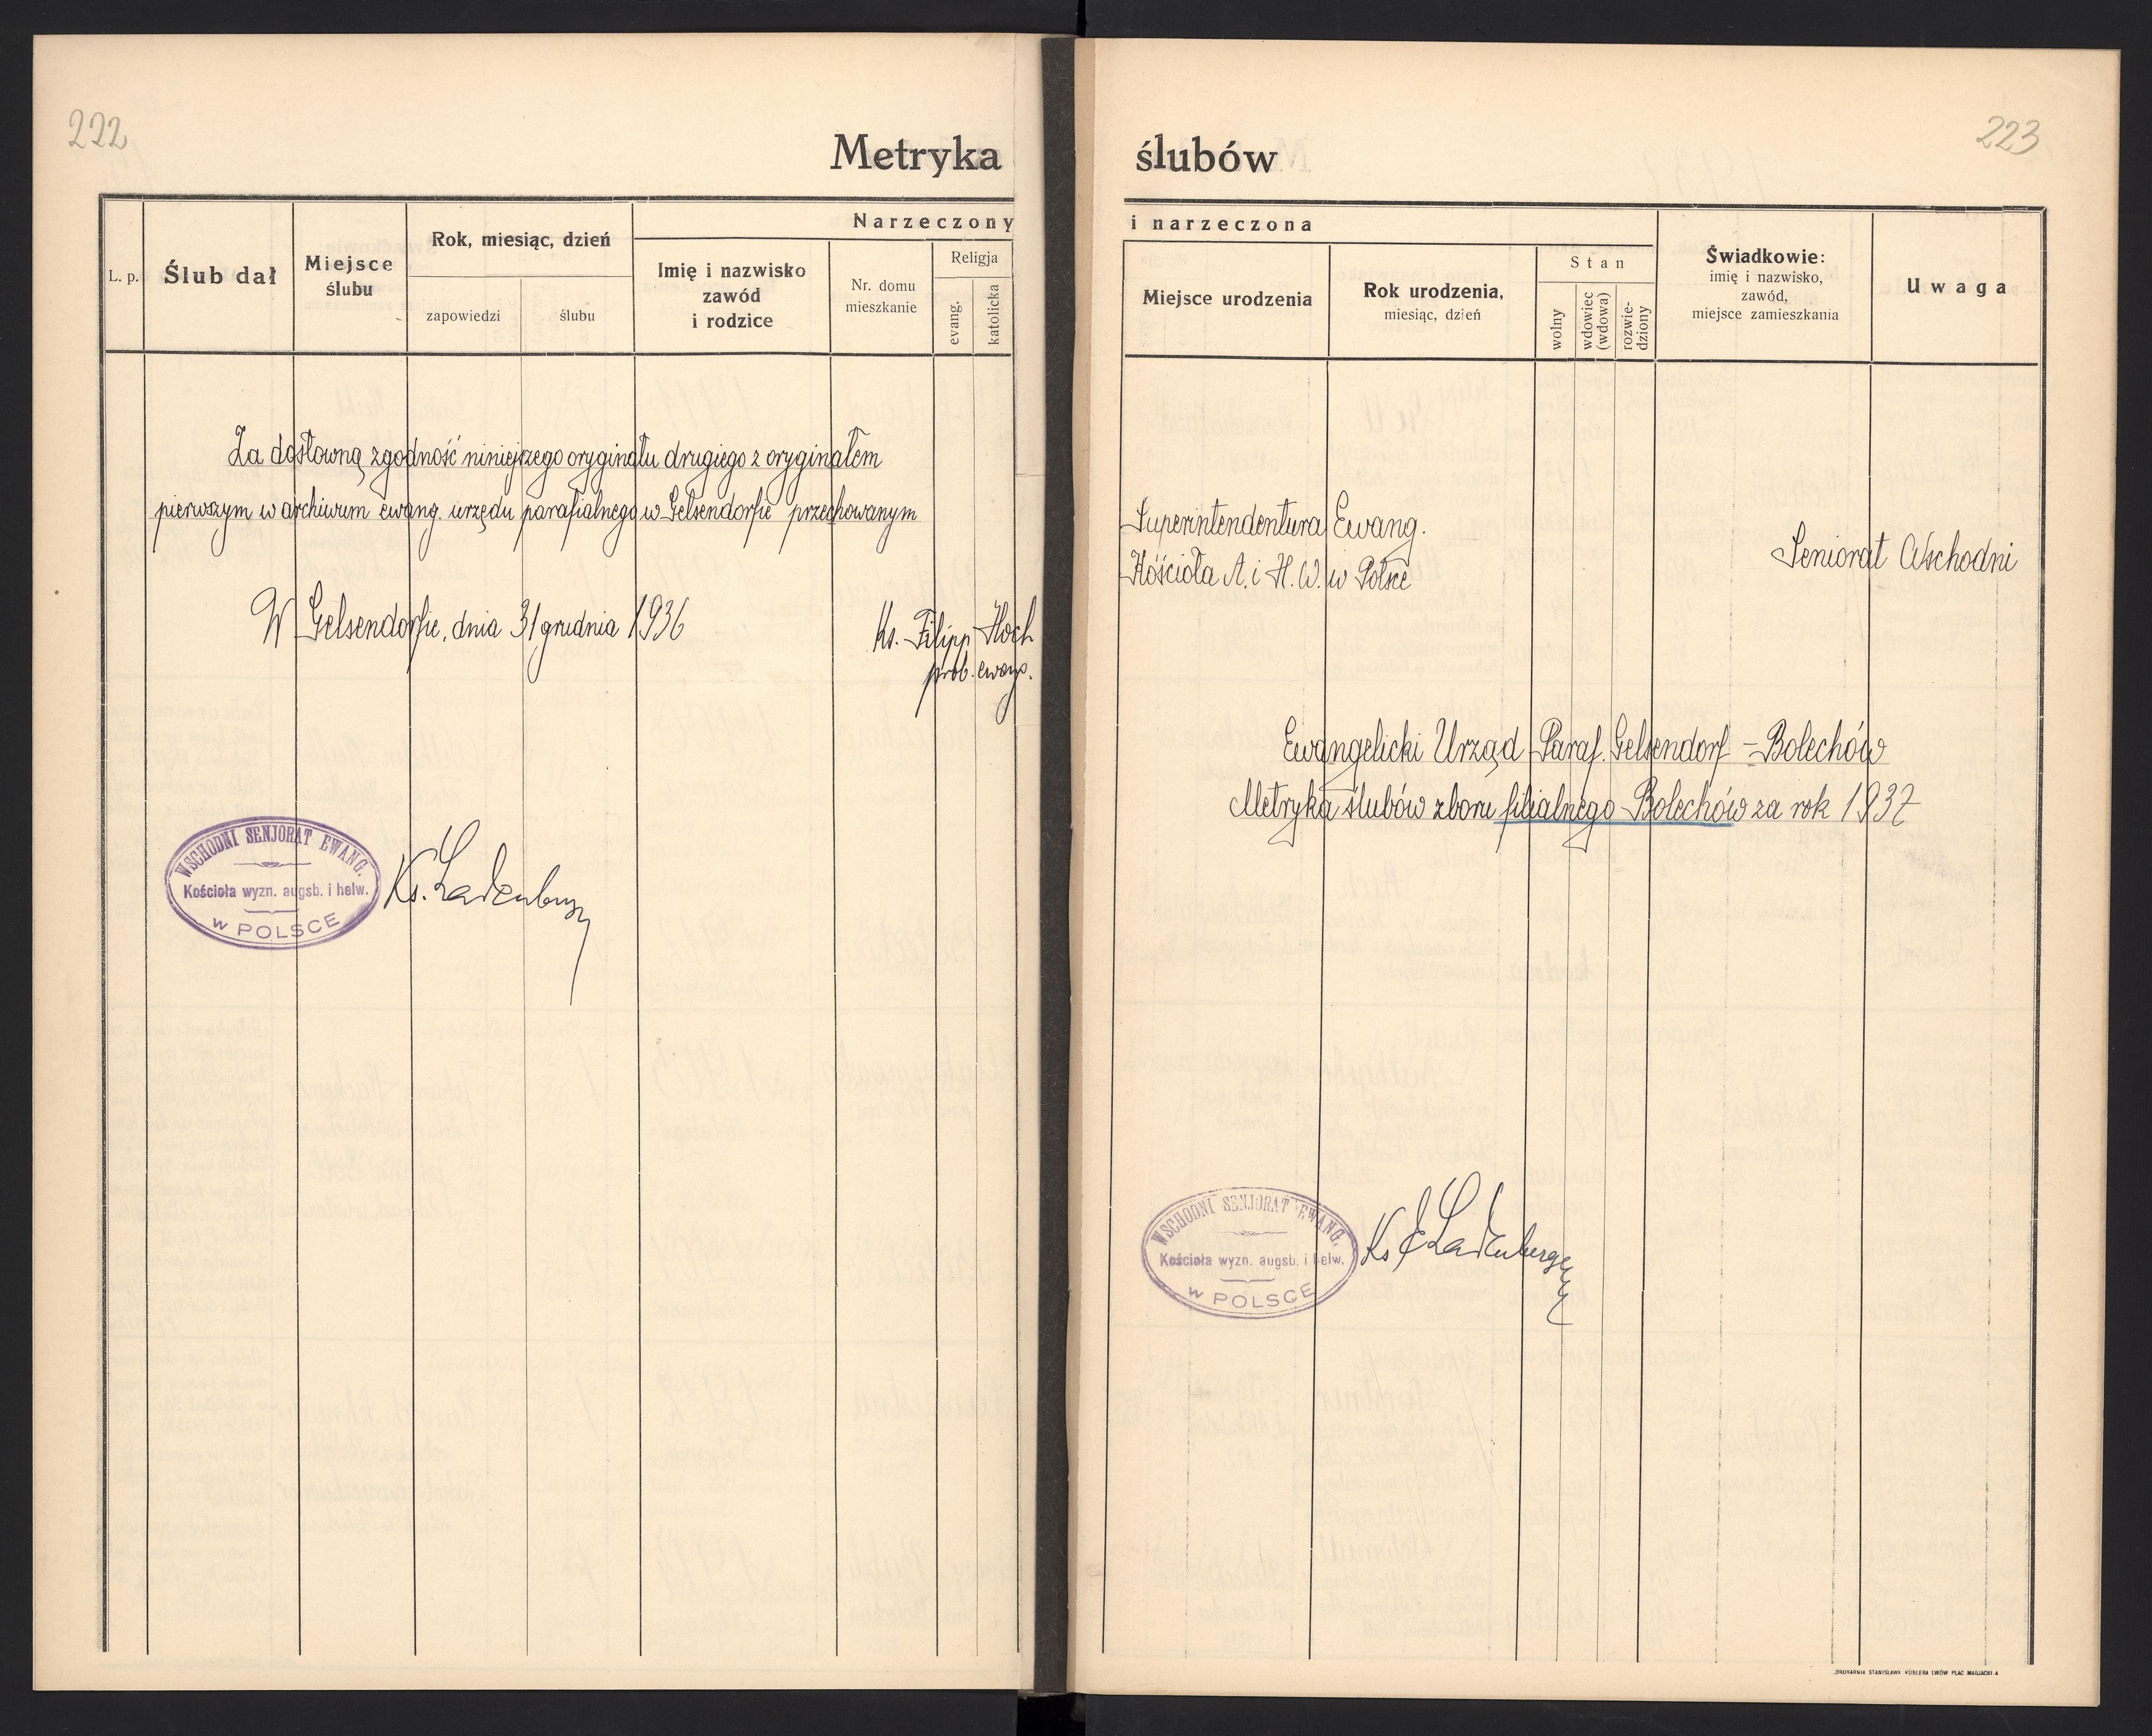 222
Metryka
L. p.
Ślub dał
Miejsce
ślubu
Rok, miesiąc, dzień
zapowiedzi
ślubu
Narzeczony
Imię i nazwisko
zawód
i rodzice
Nr. domu
mieszkanie
Religja
evang.
katolicka
Za dosłowną zgodność niniejszego oryginału drugiego z oryginałem
pierwszym w archiwum ewang. urzędu parafialnego w Gelsendorfie przechowanym
W Gelsendorfie, dnia 31 grudnia 1936
Ks. Filipp Hoch
prob. ewang.
WSCHODNI SENJORAT EWANG.
Kościoła wyzn. augsb. i helw.
w POLSCE
Ks. Ladenberger
223
ślubów
i narzeczona
Miejsce urodzenia
Rok urodzenia,
miesiąc, dzień
Stan
wolny
wdowiec
(wdowa)
rozwie-
dziony
Świadkowie:
imię i nazwisko,
zawód,
miejsce zamieszkania
Uwaga
Superintendentura Ewang.
Kościoła A. i H. W. w Polsce
Seniorat Wschodni
Ewangelicki Urząd Paraf. Gelsendorf - Bolechów
Metryka ślubów zboru filialnego Bolechów za rok 1937
WSCHODNI SENJORAT EWANG.
Kościoła wyzn. augsb. i helw.
w POLSCE
Ks E Ladenberger
DRUKARNIA STANISŁAWA KÜBLERA LWÓW PLAC MARJACKI 4